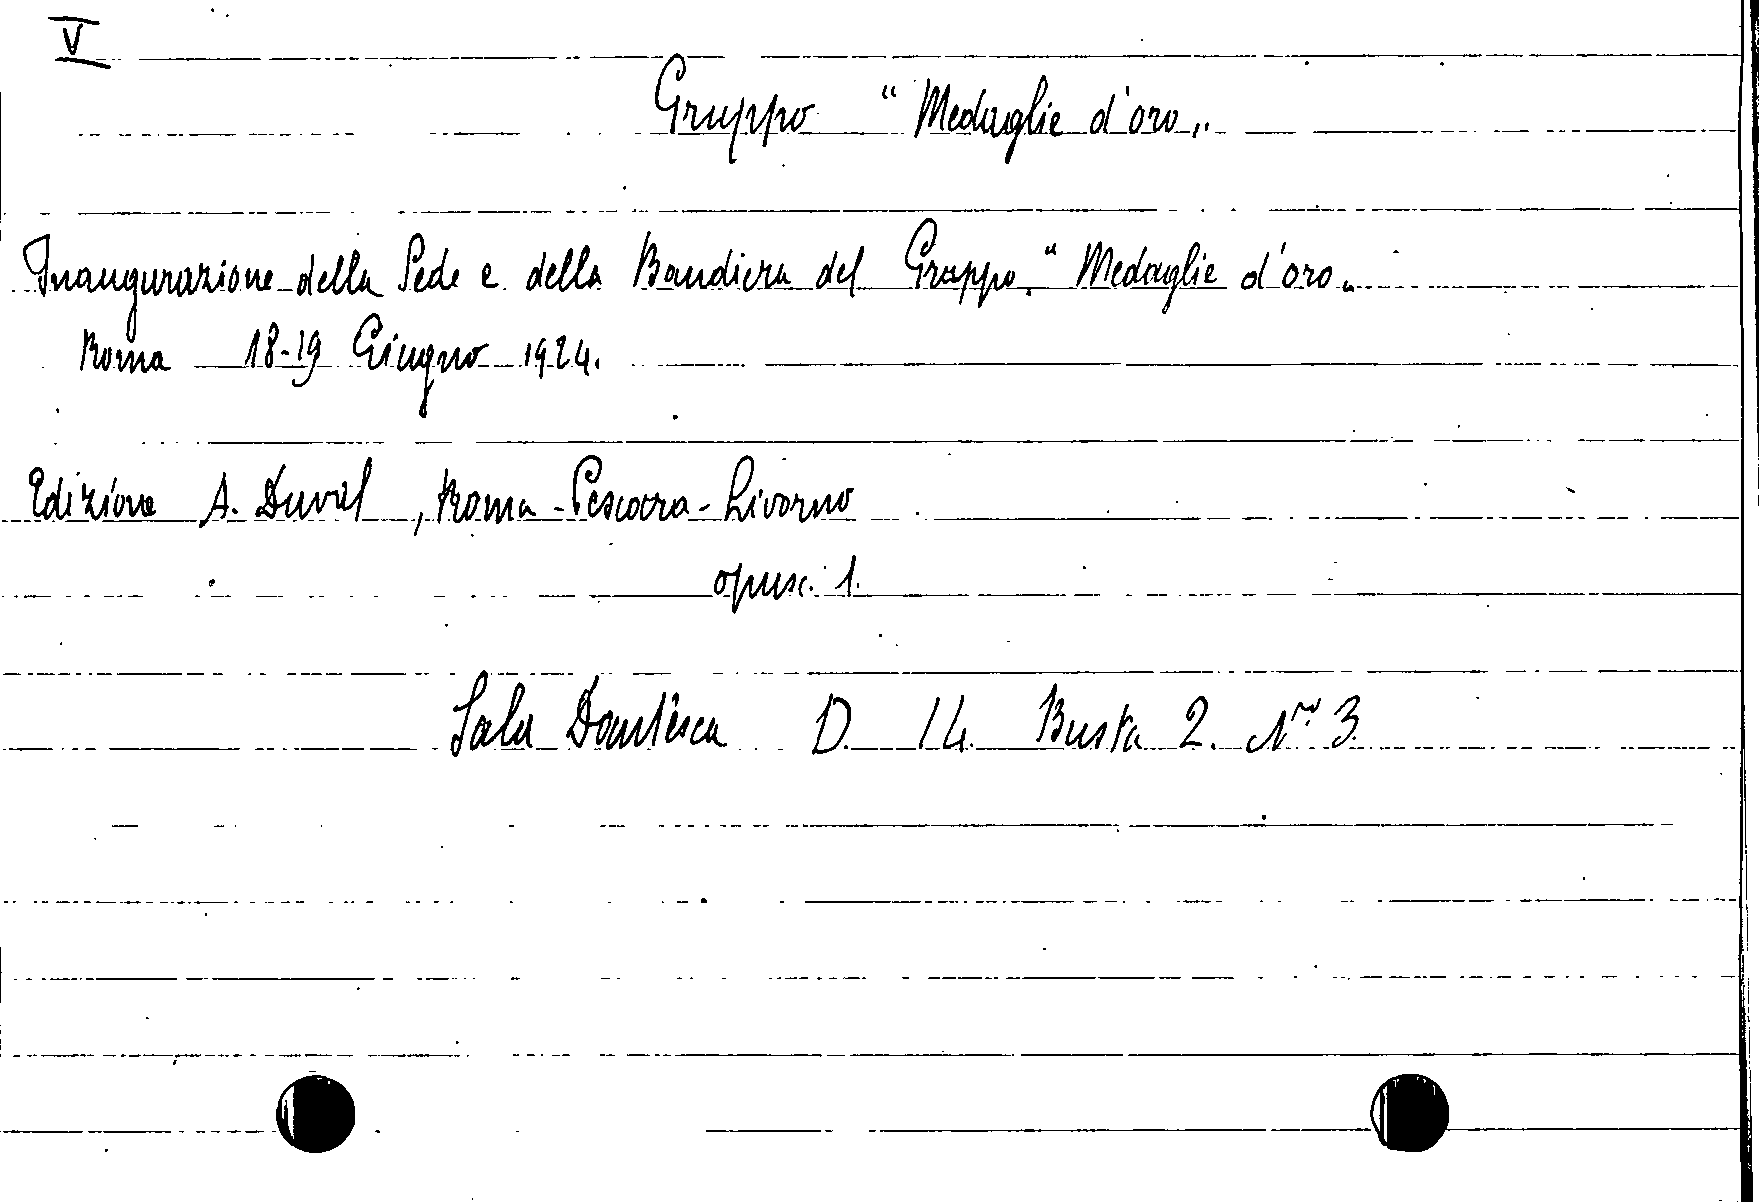 V
Gruppo "Medaglie d'oro„
Inaugurazione della Sede e della Bandiera del Gruppo "Medaglie d'oro„
Roma 18-19 Giugno 1924.
Edizione A. Duval, Roma-Pescara-Livorno
opusc. 1.
Sala Dantesca D. 14. Busta 2. Nro 3